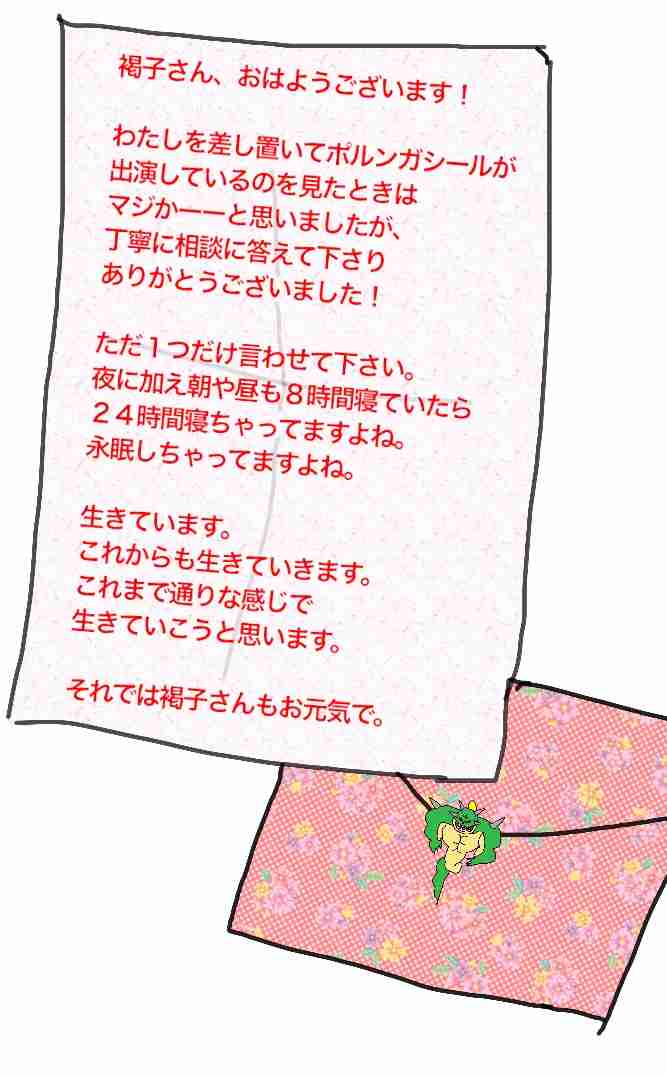 褐子さん、おはようございます！
わたしを差し置いてポルンガシールが
出演しているのを見たときは
マジかーーと思いましたが、
丁寧に相談に答えて下さり
ありがとうございました！
ただ１つだけ言わせて下さい。
夜に加え朝や昼も８時間寝ていたら
２４時間寝ちゃってますよね。
永眠しちゃってますよね。
生きています。
これからも生きていきます。
これまで通りな感じで
生きていこうと思います。
それでは褐子さんもお元気で。